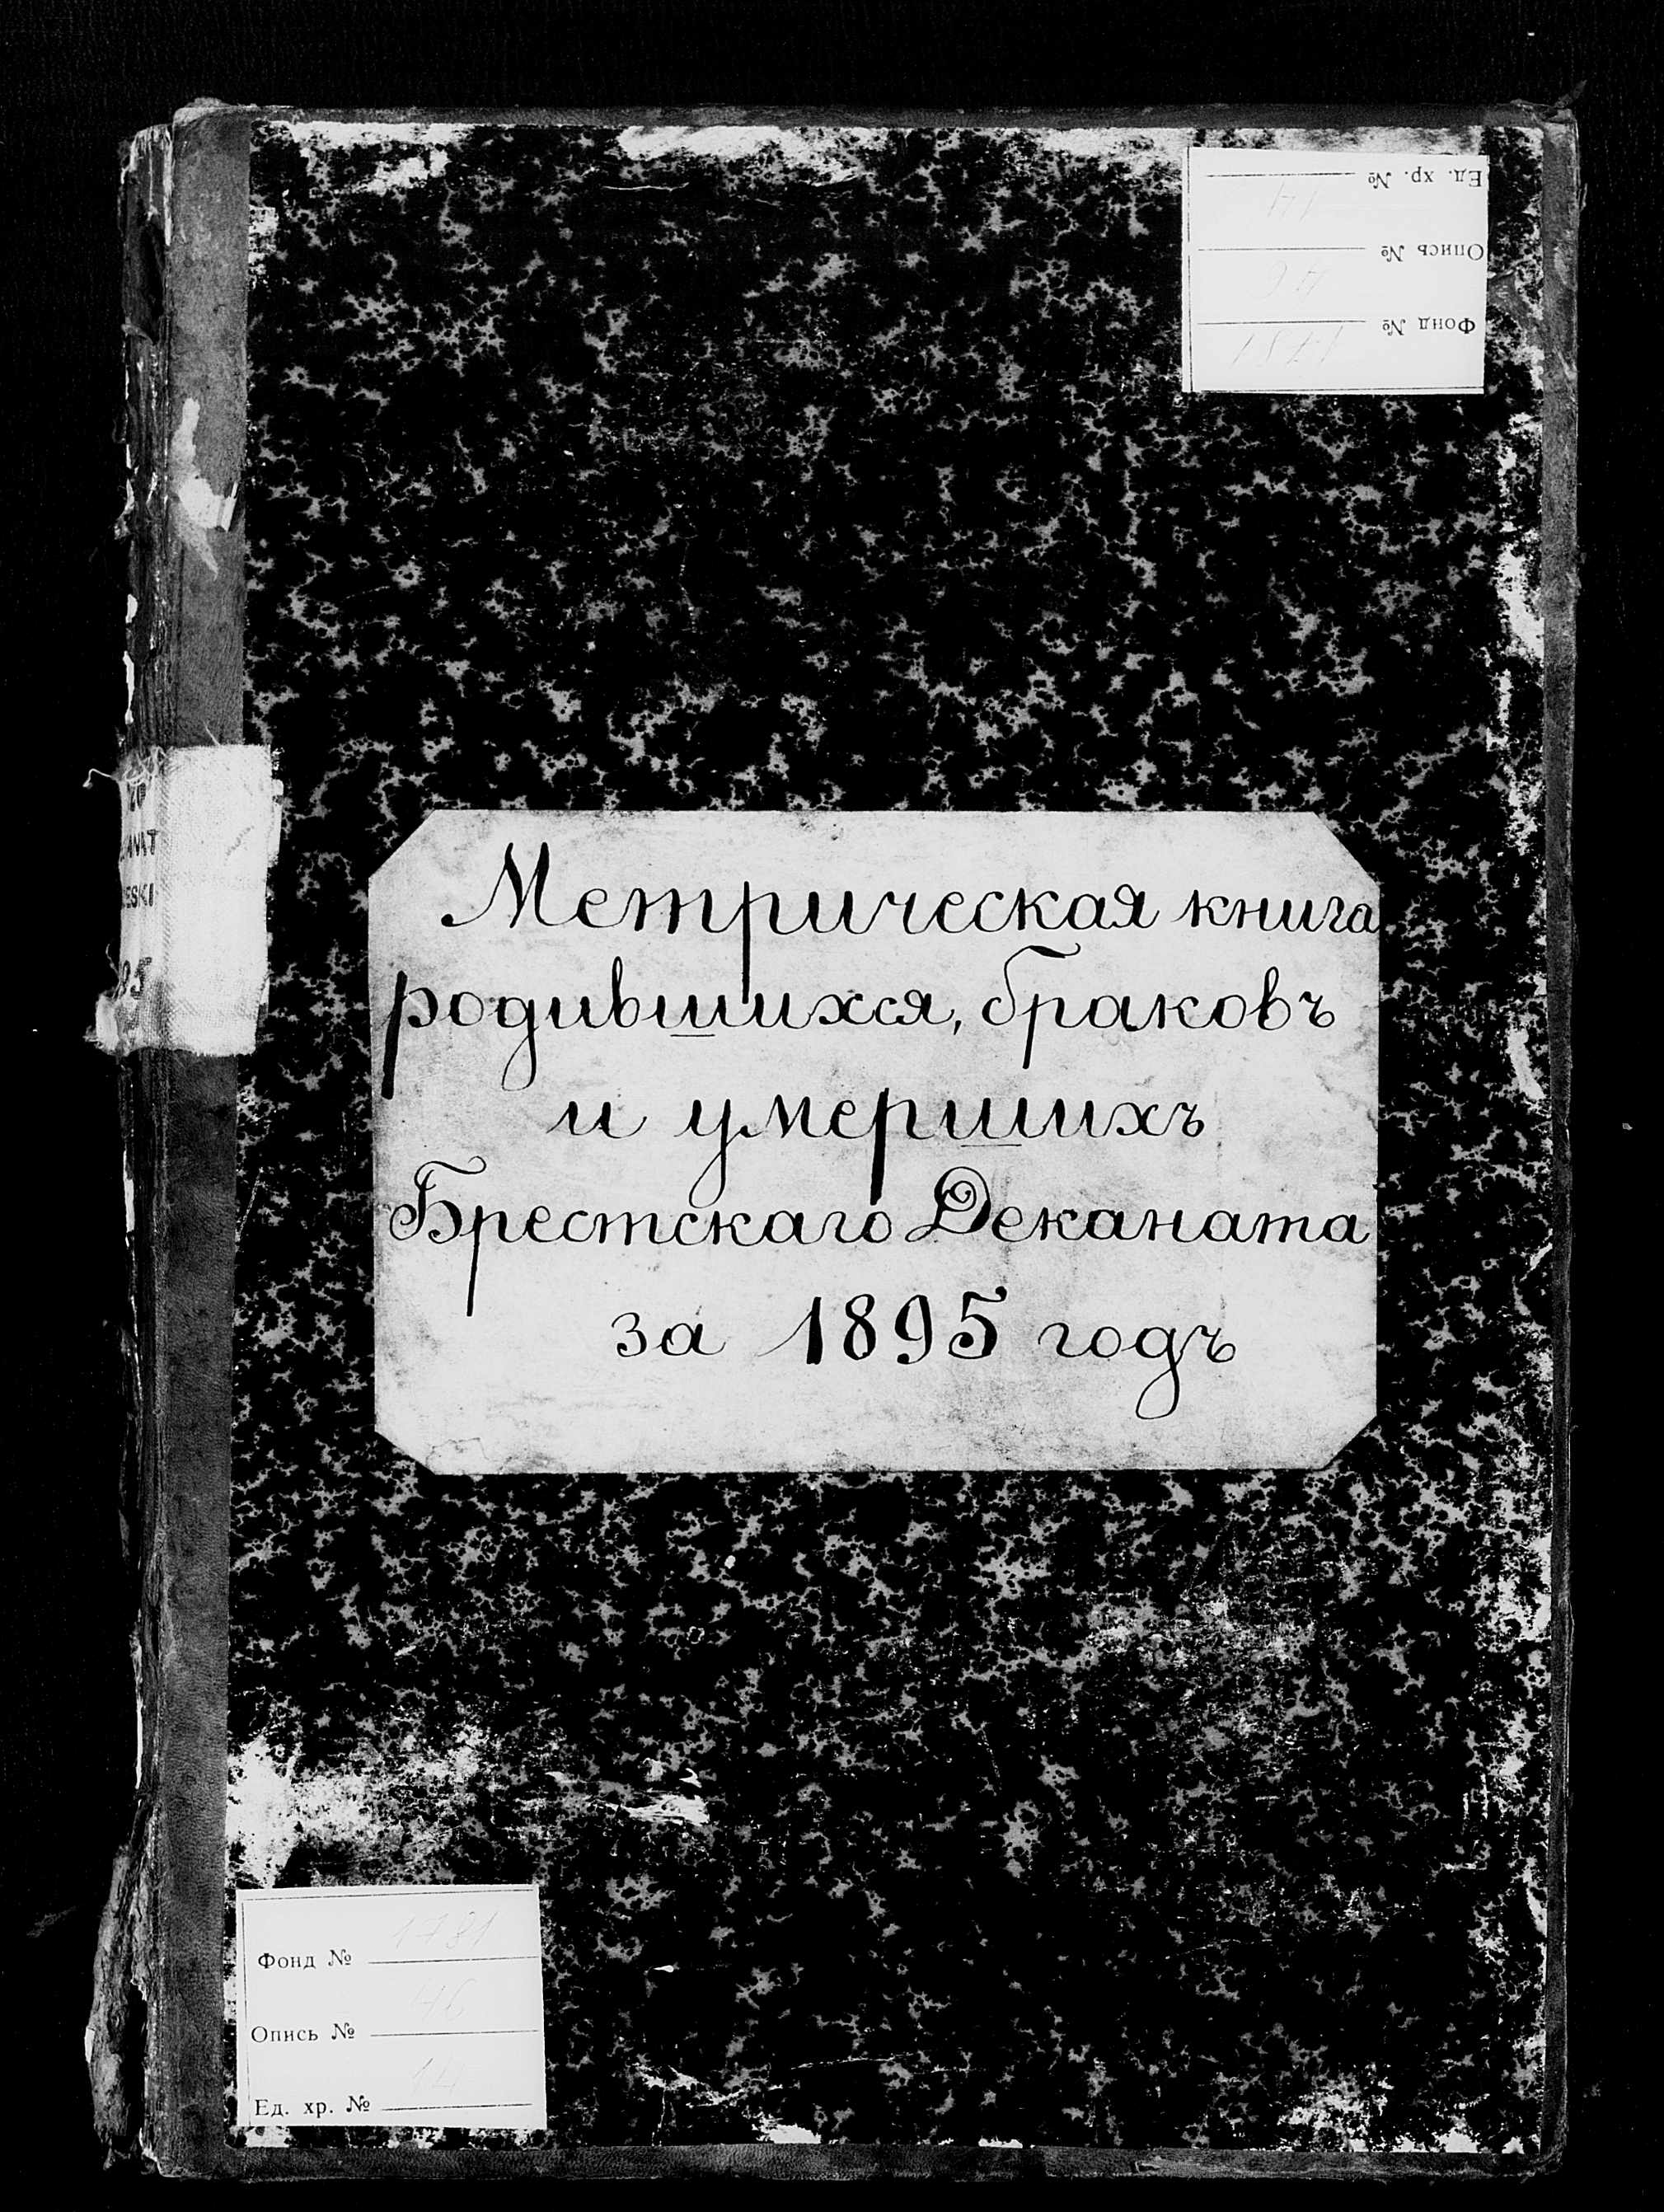 Ед. хр. № 14
Опись № 46
Фонд № 1781
Метрическая книга
родившихся, браковъ
и умершихъ
Брестскаго Деканата
за 1895 годъ
Фонд № 1781
Опись № 46
Ед. хр. № 14